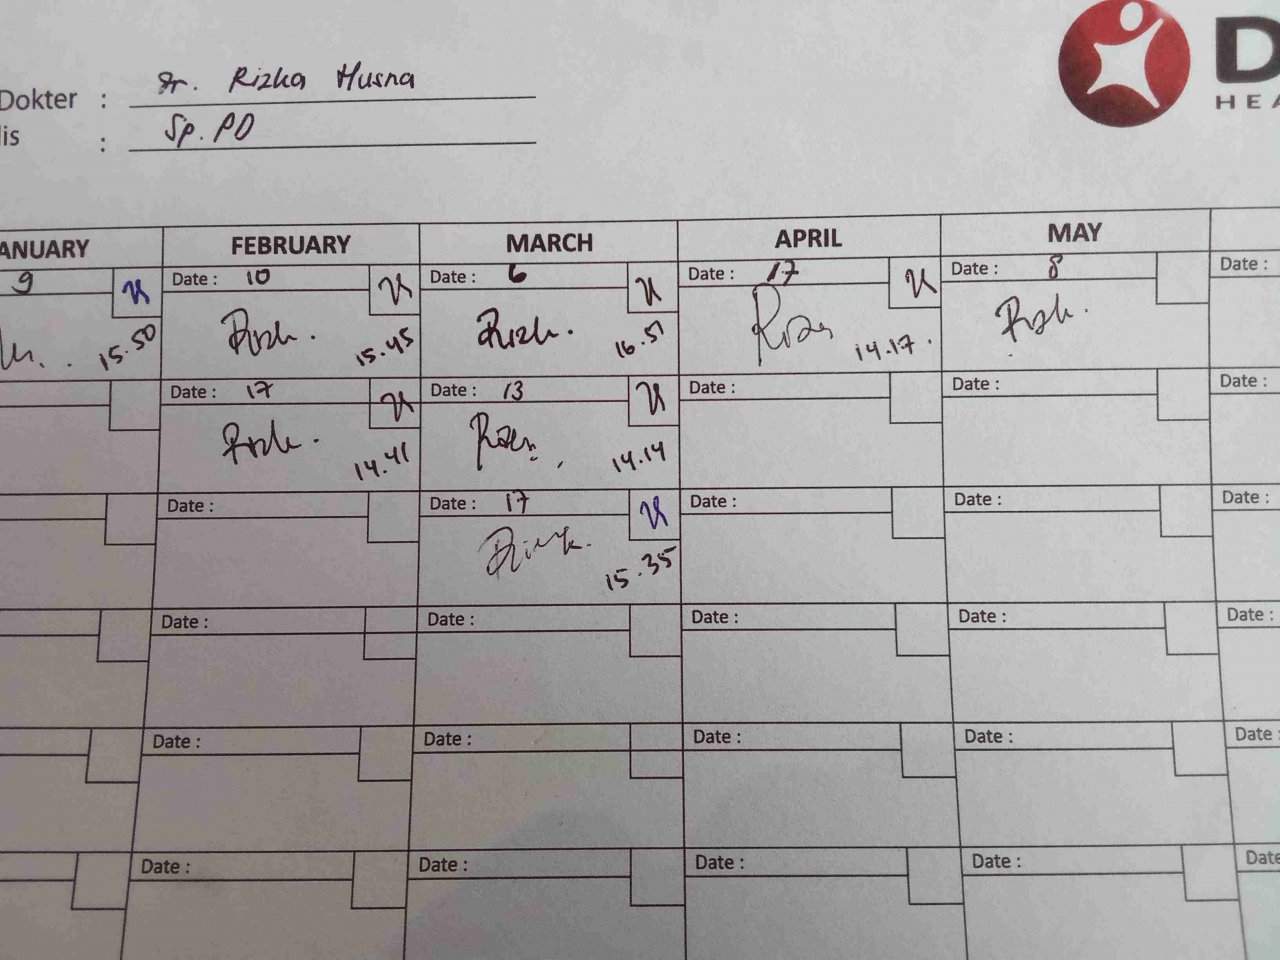 Dokter : dr. Rizka Husna
lis : Sp. PD
D
HEA
ANUARY FEBRUARY MARCH APRIL MAY
9 Date : 10 Date : 6 Date : 17 Date : 8 Date :
15.50 15.45 16.51 14.17.
Date : 17 Date : 13 Date : Date : Date :
14.41 14.14
Date : Date : 17 Date : Date : Date :
15.35
Date : Date : Date : Date : Date :
Date : Date : Date : Date : Date :
Date : Date : Date : Date : Date